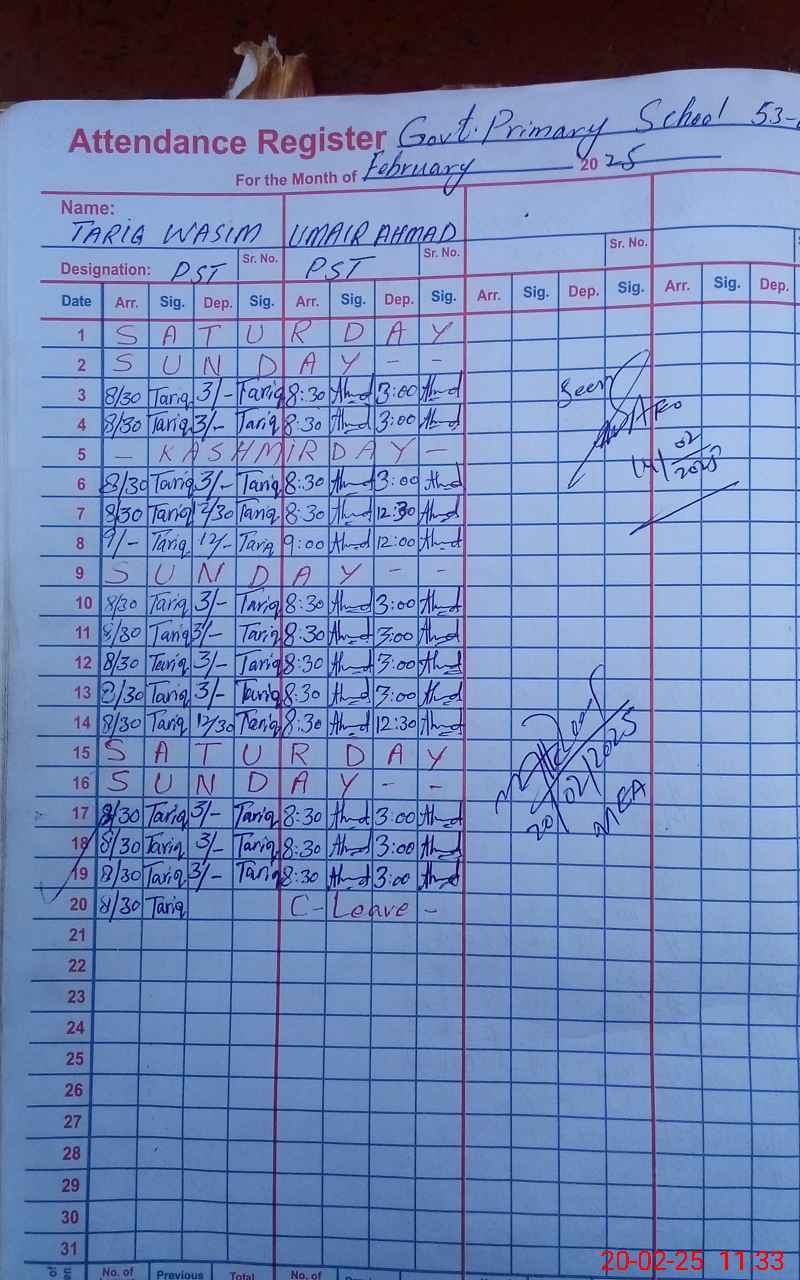 Attendance Register Govt. Primary School 53-
For the Month of February 2025
Name:
TARIQ WASIM UMAIR AHMAD
Sr. No. Sr. No. Sr. No.
Designation: PST PST
Date Arr. Sig. Dep. Sig. Arr. Sig. Dep. Sig. Arr. Sig. Dep. Sig. Arr. Sig. Dep.
1 S A T U R D A Y
2 S U N D A Y - -
3 8/30 Tariq 3/- Tariq 8:30 Ahmd 3:00 Ahmd
4 8/30 Tariq 3/- Tariq 8:30 Ahmd 3:00 Ahmd
5 - KASHMIR DAY -
6 8/30 Tariq 3/- Tariq 8:30 Ahmd 3:00 Ahmd
7 8/30 Tariq 12/30 Tariq 8:30 Ahmd 12:30 Ahmd
8 9/- Tariq 12/- Tariq 9:00 Ahmd 12:00 Ahmd
9 S U N D A Y - -
10 8/30 Tariq 3/- Tariq 8:30 Ahmd 3:00 Ahmd
11 8/30 Tariq 3/- Tariq 8:30 Ahmd 3:00 Ahmd
12 8/30 Tariq 3/- Tariq 8:30 Ahmd 3:00 Ahmd
13 8/30 Tariq 3/- Tariq 8:30 Ahmd 3:00 Ahmd
14 8/30 Tariq 12/30 Tariq 8:30 Ahmd 12:30 Ahmd
15 S A T U R D A Y
16 S U N D A Y - -
17 8/30 Tariq 3/- Tariq 8:30 Ahmd 3:00 Ahmd
18 8/30 Tariq 3/- Tariq 8:30 Ahmd 3:00 Ahmd
19 8/30 Tariq 3/- Tariq 8:30 Ahmd 3:00 Ahmd
20 8/30 Tariq C-Leave -
21
22
23
24
25
26
27
28
29
30
31
No. of Previous Total No. of
Seen
AEO
14/02/2025
20/02/2025
MEA
20-02-25 11:33